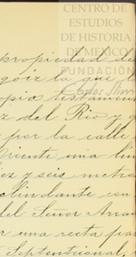 CENTRO DE
ESTUDIOS
DE HISTORIA
DE MÉXICO
FUNDACIÓN
Carlos Slim
propiedad de
que
testamen
del Rio y
por la calle
Oriente una lin
y seis metro
colindante con
del Señor
una recta par
Septentrional